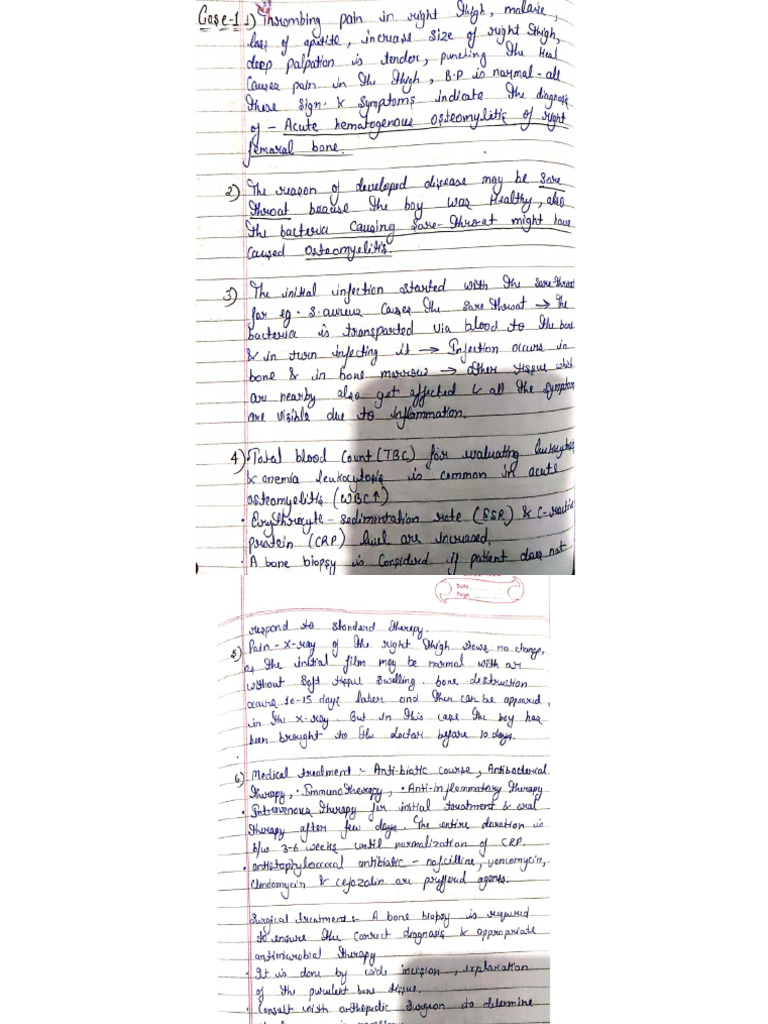 Case-1 1) Thrombing pain in right Thigh, malaise,
loss of apetite, increase size of right Thigh,
deep palpation is tender, punching the Heal
Causes pain in the Thigh, B.P is normal - all
these sign & symptoms indicate the diagnosis
of - Acute hematogenous osteomylitis of right
femoral bone.
2) The reason of developed disease may be Sore
Throat because the boy was Healthy, also
the bacteria causing Sore-Throat might have
caused Osteomyelitis.
3) The initial infection started with the sore-throat
for eg. S. aureus causes the sore throat → the
bacteria is transported via blood to the bone
& in turn infecting it → Infection occurs in
bone & in bone morrow → other tissue which
are nearby also get affected & all the symptom
are visible due to inflammation.
4) • Total blood count (TBC) for evaluating leukocytosis
& anemia leukocytosis is common in acute
osteomyelitis (WBC↑)
• Erythrocyte - sedimentation rate (ESR) & C-reactive
protein (CRP) level are increased.
• A bone biopsy is considered if patient does not
Date
Page
respond to standard therapy.
5) Pain - X-ray of the right thigh shows no change,
as the initial film may be normal with or
without soft tissue swelling. bone destruction
occurs 10-15 days later and then can be appeared,
in the x-ray. But in this case the boy has
been brought to the doctor before 10 days.
6) Medical treatment :- Anti-biotic course, Antibacterial
therapy, • Immuno therapy, • Anti-inflammatory therapy
• Intravenous therapy for initial treatment & oral
therapy after few days. The entire duration is
b/w 3-6 weeks until normalization of CRP.
• antistaphylococcal antibiotic - nafcilline, vancomycin,
Clindomycin & cefazolin are preffered agents.
Surgical treatment :- A bone biopsy is required
to ensure the correct diagnosis & appropriate
antimicrobial therapy
• It is done by wide incision, explanation
of the purulent bone tissue.
• Consult with orthopedic surgeon to determine